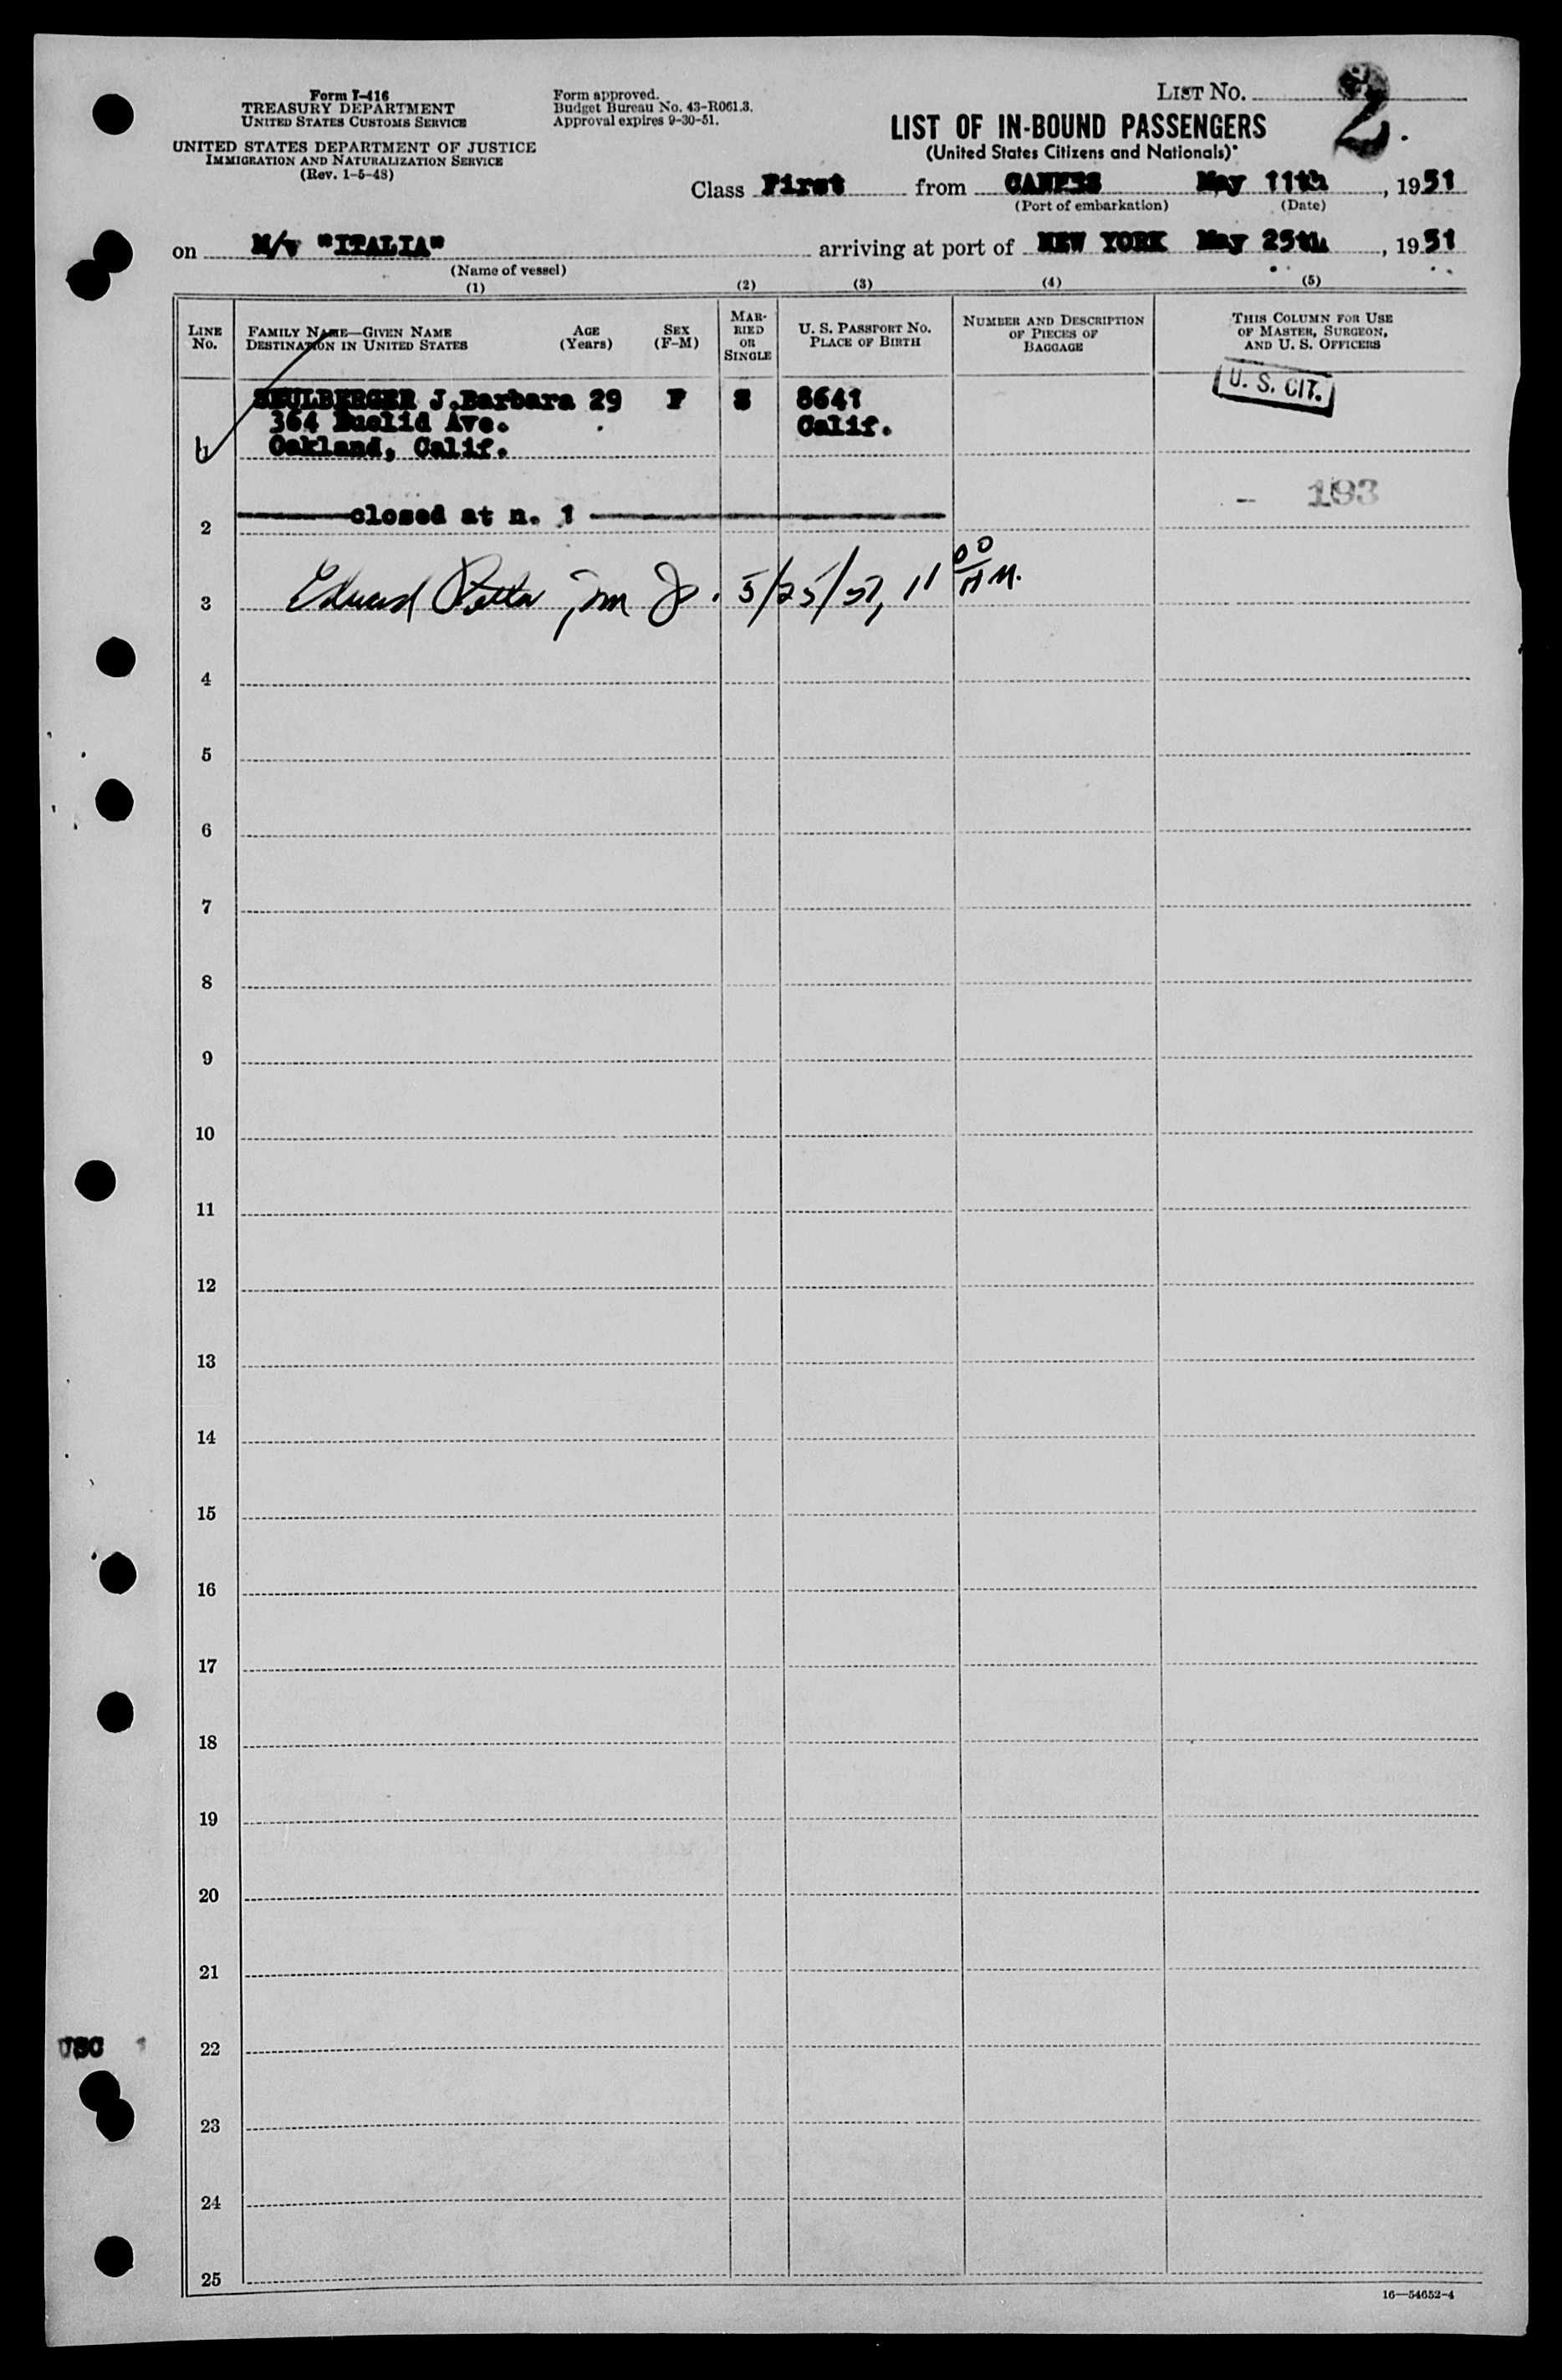 Form I-416
TREASURY DEPARTMENT
UNITED STATES CUSTOMS SERVICE
UNITED STATES DEPARTMENT OF JUSTICE
IMMIGRATION AND NATURALIZATION SERVICE
(Rev. 1-5-48)
Form approved.
Budget Bureau No. 43-R061.3.
Approval expires 9-30-51.
LIST NO. 2.
LIST OF IN-BOUND PASSENGERS
(United States Citizens and Nationals)
Class First from CANNES May 11th, 1951
(Port of embarkation) (Date)
on M/v "ITALIA" arriving at port of NEW YORK May 25th, 1951
(Name of vessel)
(1) (2) (3) (4) (5)
LINE No.
FAMILY NAME—GIVEN NAME
DESTINATION IN UNITED STATES
AGE (Years)
SEX (F-M)
MARRIED OR SINGLE
U. S. PASSPORT NO.
PLACE OF BIRTH
NUMBER AND DESCRIPTION OF PIECES OF BAGGAGE
THIS COLUMN FOR USE OF MASTER, SURGEON, AND U. S. OFFICERS
HEULBERGER J.Barbara 29 F S 8641
364 Euclid Ave. Calif.
1 Oakland, Calif.
U. S. CIT.
- 193
2 closed at n. 1
3 Edward 5/25/51, 11 00 AM.
4
5
6
7
8
9
10
11
12
13
14
15
16
17
18
19
20
21
USC 1
22
23
24
25
16—54652-4